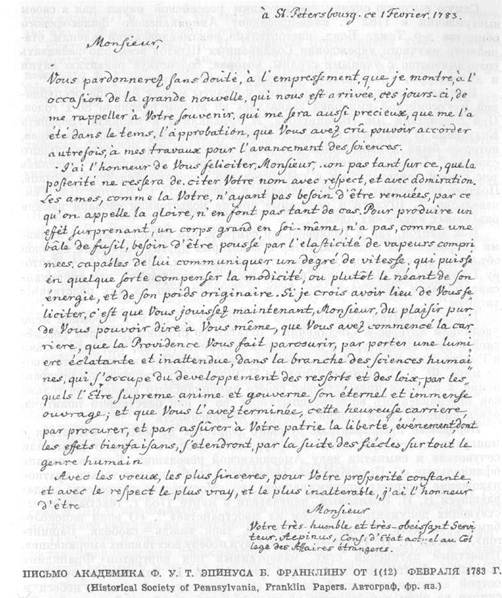 à St. Petersbourg. ce 1 Fevrier. 1783.
Monsieur,
Vous pardonnerez sans douté, à l'empressement, que je montre, à l'
occasion de la grande nouvelle, qui nous est arrivée, ces jours-ci, de
me rappeller à Votre souvenir, qui me sera aussi precieux, que me l'a
été dans le tems, l'approbation, que Vous avez crû pouvoir accorder
autrefois, à mes travaux pour l'avancement des sciences.
J'ai l'honneur de Vous feliciter, Monsieur, non pas tant sur ce, que la
posterité ne cessera de citer Votre nom avec respect, et avec admiration.
Les ames, comme la Votre, n'ayant pas besoin d'être remuées, par ce
qu'on appelle la gloire, n'en font pas tant de cas. Pour produire un
effét surprenant, un corps grand en soi-même, n'a pas, comme une
bâle de fusil, besoin d'être poussé par l'elasticité de vapeurs compri
mees, capables de lui communiquer un degré de vitesse, qui puisse
en quelque sorte compenser la modicité, ou plutôt le néant de son
énergie, et de son poids originaire. Si je crois avoir lieu de Vous fe
liciter, c'est que Vous jouissez maintenant, Monsieur, du plaisir pur,
de Vous pouvoir dire à Vous même, que Vous avez commencé la car
riere, que la Providence Vous fait parcourir, par porter une lumi
ere éclatante et inattendue, dans la branche des sciences humai
nes, qui s'occupe du developpement des ressorts et des loix, par les
quels l'Être supreme anime et gouverne son éternel et immense
ouvrage; et que Vous l'avez terminée, cette heureuse carriere,
par procurer, et par assûrer à Votre patrie la liberté, événement, dont
les effets bienfaisans, s'etendront, par la suite des siécles, sur tout le
genre humain
Avec les voeux, les plus sinceres, pour Votre prosperité constante,
et avec le respect le plus vray, et le plus inalterable, j'ai l'honneur
d'être
Monsieur
Votre très-humble et très-obeissant Servi
teur, Aepinus, Cons: d'Etat actuel au Col
lege des Affaires étrangeres.
ПИСЬМО АКАДЕМИКА Ф. У. Т. ЭПИНУСА Б. ФРАНКЛИНУ ОТ 1(12) ФЕВРАЛЯ 1783 Г.
(Historical Society of Pennsylvania, Franklin Papers. Автограф, фр. яз.)